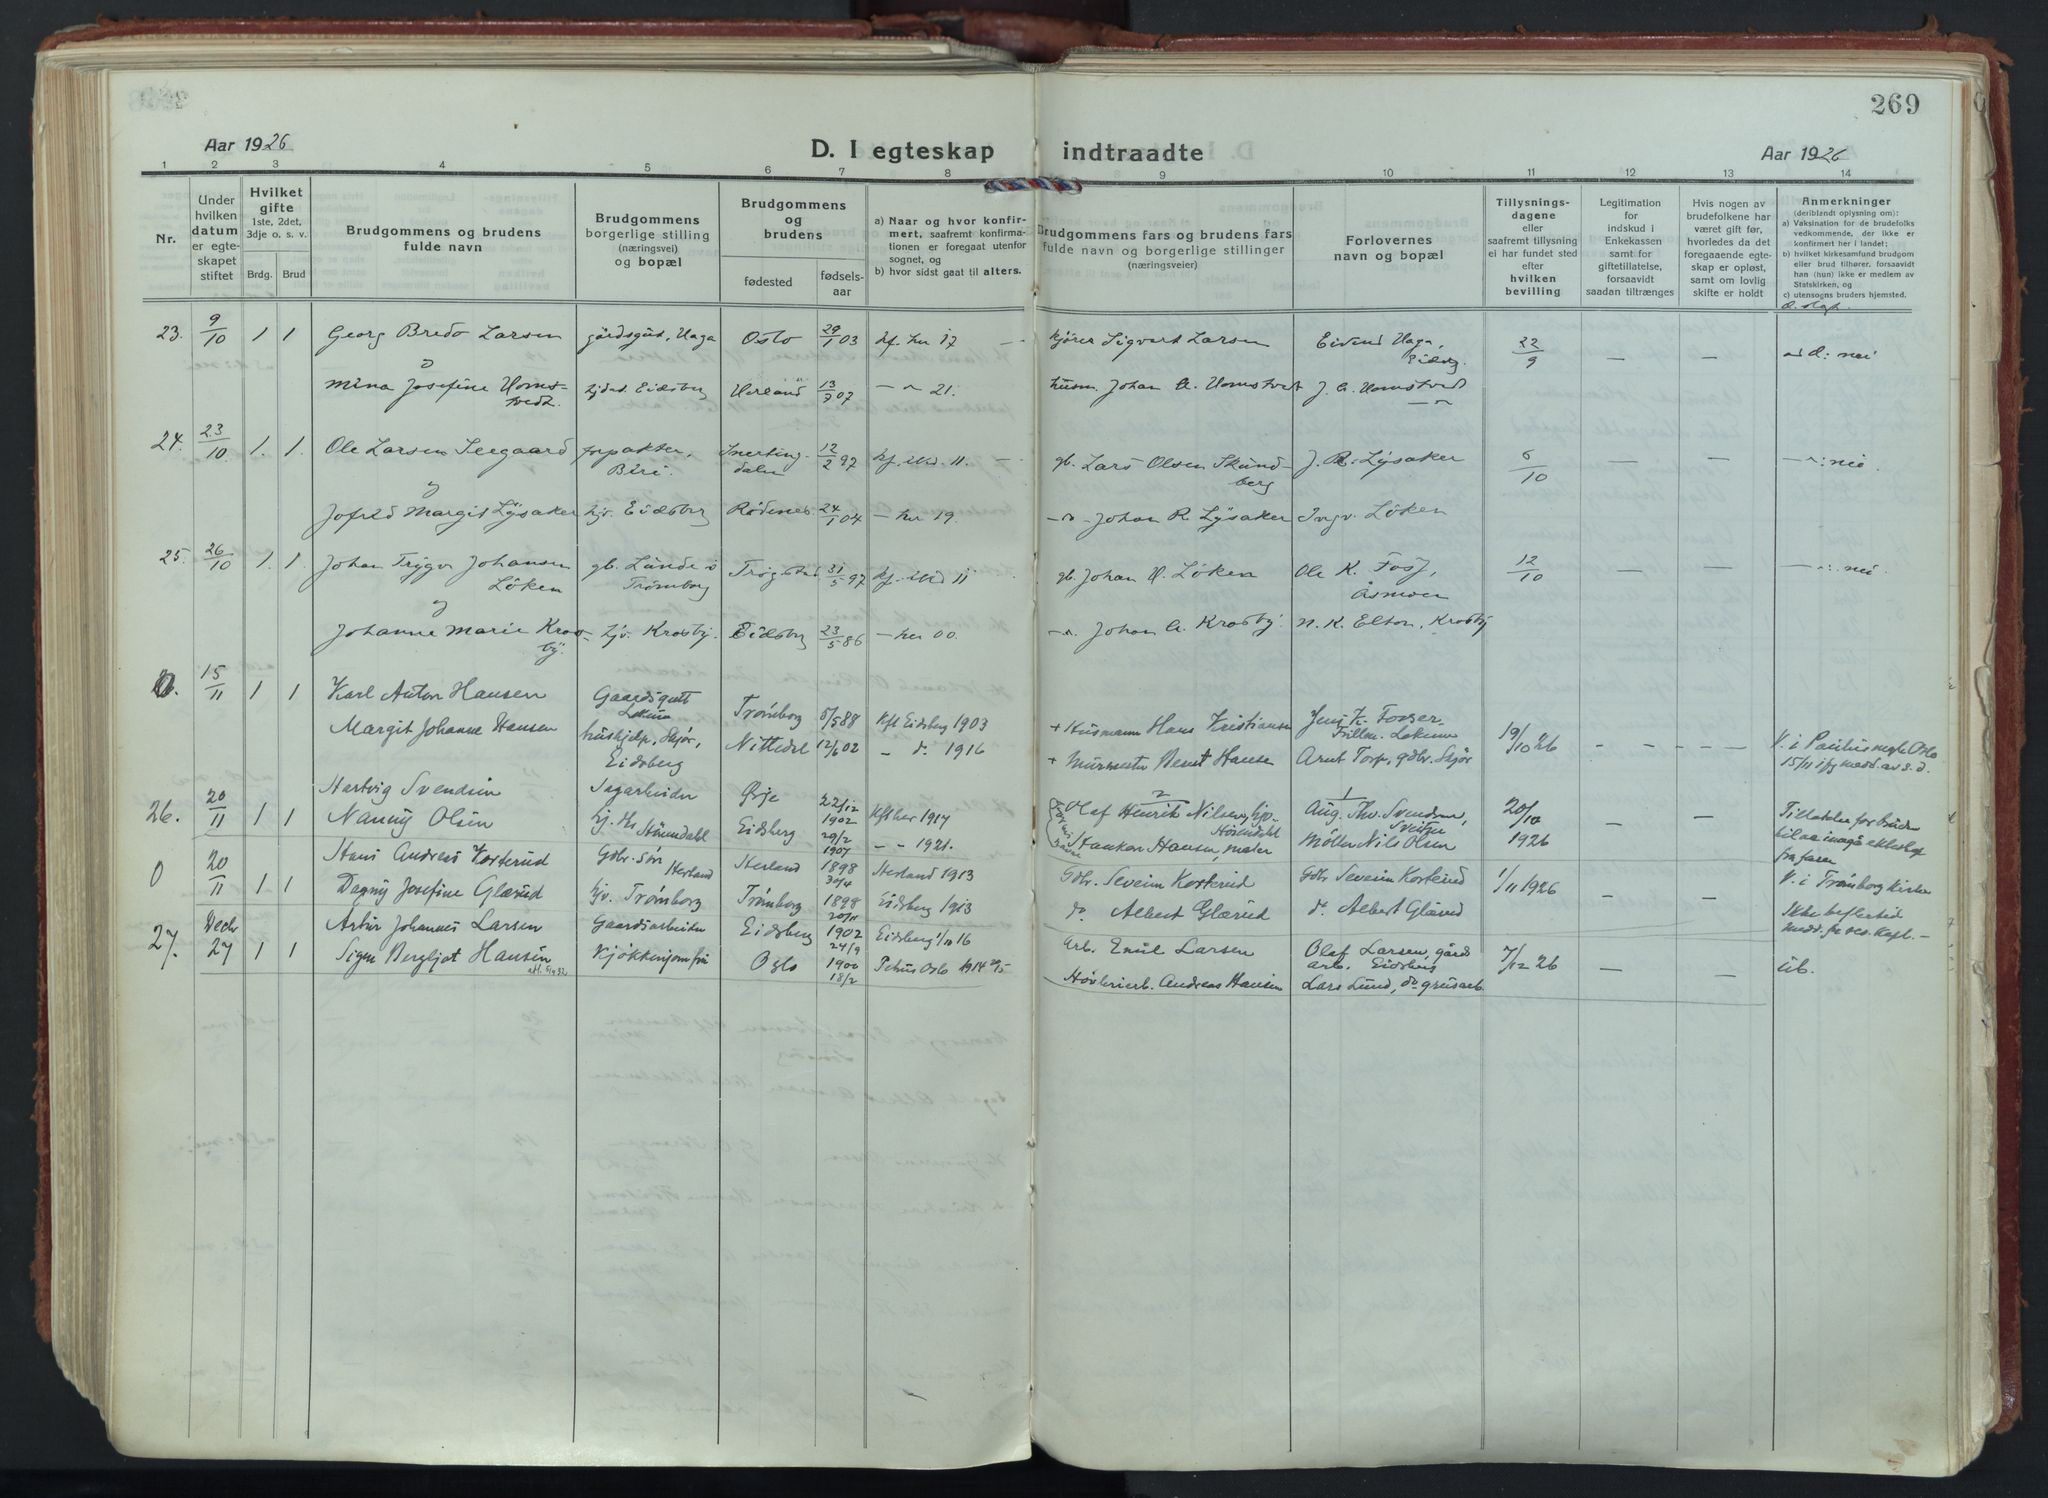 269
Aar 1926
D. I egteskap indtraadte
Aar 1926
1 2 3 4 5 6 7 8 9 10 11 12 13 14
Nr.
Under
hvilken
datum
er egte-
skapet
stiftet
Hvilket
gifte
1ste, 2det,
3dje o. s. v.
Brdg. Brud
Brudgommens og brudens
fulde navn
Brudgommens
borgerlige stilling
(næringsvei)
og bopæl
Brudgommens
og
brudens
fødested
fødsels-
aar
a) Naar og hvor konfir-
mert, saafremt konfirma-
tionen er foregaat utenfor
sognet, og
b) hvor sidst gaat til alters.
Brudgommens fars og brudens fars
fulde navn og borgerlige stillinger
(næringsveier)
Forlovernes
navn og bopæl
Tillysnings-
dagene
eller
saafremt tillysning
ei har fundet sted
efter
hvilken
bevilling
Legitimation
for
indskud i
Enkekassen
samt for
giftetillatelse,
forsaavidt
saadan tiltrænges
Hvis nogen av
brudefolkene har
været gift før,
hvorledes da det
foregaaende egte-
skap er opløst,
samt om lovlig
skifte er holdt
Anmerkninger
(deriblandt oplysning om):
a) Vaksination for de brudefolks
vedkommende, der ikke er
konfirmert her i landet;
b) hvilket kirkesamfund brudgom
eller brud tilhører, forsaavidt
han (hun) ikke er medlem av
Statskirken, og
c) utensogns bruders hjemsted.
23. 9/10 1 1 Georg Bredo Larsen gårdsgut, Haga Oslo 29/1 03 kf. her 17 — kjører Sigvart Larsen Eivind Haga, 22/9 — — nei
Eidsbg.
Mina Josefine Homst- Eidsberg Herland 13/7 07 — " 21. husm. Johan A. Homstvedt J. A. Homstvedt
vedt.
24. 23/10 1. 1. Ole Larsen Seegaard forpakter, Snerting- 12/2 97 kf. ibid. 11. — gb. Lars Olsen Skund- J. R. Lÿsaker 6/10 — — — " : nei.
Biri dalen berg
og
Jofrid Margit Lÿsaker hjv. Eidsberg Rødenes 24/1 04 — her 19. — " — Johan R. Lÿsaker Ingv. Løken
25. 26/10 1. 1. Johan Trygv Johansen gb. Lunde i Trøgstad 31/5 97 kf. ibid 11 gb. Johan H. Løken Ole K. Foss, 12/10 — — — " : nei.
Løken Trømborg Åsmoen
og
Johanne Marie Kros- hjv. Krosby. Eidsberg 23/5 86 — her 00. — " . Johan A. Krosby. N. K. Elton, Krosby
by.
0. 15/11 1 1 Karl Anton Hansen Gaardsgutt Trømborg 5/5 88 Kft Eidsberg 1903 + Husmann Hans Kristiansen Jens K. Fosser- 19/10 26 — — —
Margit Johanne Hansen hushjelp, Skjør, Nittedal 12/6 02 — do. 1916 + Murmester Bernt Hansen Arnt Torp, gdbr. Skjør V. i Paulus Oslo
Eidsberg 15/11
Hartvig Svendsen Sagarbeider Ørje 22/12
26. 20/11 1 1 1902 Kft her 1917 Olaf Henrik Nilsen, Aug. Th. Svendsen, 20/10 — —
Nanny Olsen Eidsberg 29/2 1907 — " — 1921. Haukar Hansen, maler Møller Nils Olsen 1926
fra faren
0 20/11 1 1 Hans Andreas Korterud Gdbr. sør Herland 1898 Herland 1913 Gdbr. Severin Korterud Gdbr Severin Korterud 1/11 1926 — —
Herland 30/4
Dagny Josefine Glærud hjv. Trømborg Trømborg 1898 Eidsberg 1913 do. Albert Glærud do. Albert Glærud V. i Trømborg Kirke
20/11
27. Decbr 27 1 1 Artur Johannes Larsen Gaardsarbeider Eidsberg 1902 Eidsberg 1/10 16 Arb. Emil Larsen Olaf Larsen, gård 7/12 26 — — ub.
24/9 arb. Eidsberg
Signe Bergljot Hansen Kjøkkenjomfru Oslo 1900 Petrus Oslo 1914 Høvleriarb. Andreas Hansen Lars Lund, do grusarb.
18/2